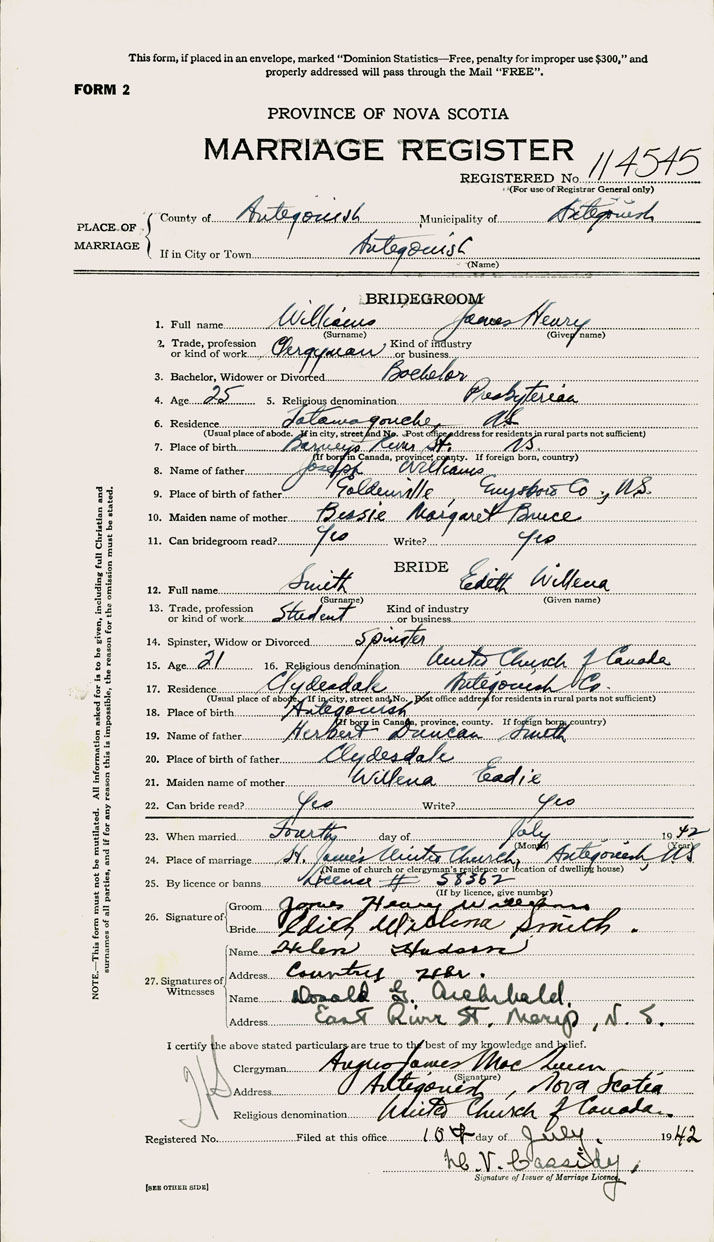 This form, if placed in an envelope, marked "Dominion Statistics—Free, penalty for improper use $300," and
properly addressed will pass through the Mail "FREE".
FORM 2
PROVINCE OF NOVA SCOTIA
MARRIAGE REGISTER
REGISTERED No. 114545
(For use of Registrar General only)
PLACE OF MARRIAGE
County of Antigonish Municipality of Antigonish
If in City or Town Antigonish
(Name)
BRIDEGROOM
1. Full name Williams James Henry
(Surname) (Given name)
2. Trade, profession or kind of work Clergyman Kind of industry or business
3. Bachelor, Widower or Divorced Bachelor
4. Age 25 5. Religious denomination Presbyterian
6. Residence Tatamagouche, N.S.
(Usual place of abode. If in city, street and No. Post office address for residents in rural parts not sufficient)
7. Place of birth Barneys River St. N.S.
(If born in Canada, province, county. If foreign born, country)
8. Name of father Joseph Williams
9. Place of birth of father Goldenville, Guysboro Co., N.S.
10. Maiden name of mother Bessie Margaret Bruce
11. Can bridegroom read? Yes Write? Yes
BRIDE
12. Full name Smith Edith Willena
(Surname) (Given name)
13. Trade, profession or kind of work Student Kind of industry or business
14. Spinster, Widow or Divorced Spinster
15. Age 21 16. Religious denomination United Church of Canada
17. Residence Clydesdale Antigonish Co.
(Usual place of abode. If in city, street and No. Post office address for residents in rural parts not sufficient)
18. Place of birth Antigonish
(If born in Canada, province, county. If foreign born, country)
19. Name of father Herbert Duncan Smith
20. Place of birth of father Clydesdale
21. Maiden name of mother Willena Eadie
22. Can bride read? Yes Write? Yes
23. When married Fourth day of July 1942
(Month) (Year)
24. Place of marriage St. James United Church, Antigonish, NS
(Name of church or clergyman's residence or location of dwelling house)
25. By licence or banns License # 58362
(If by licence, give number)
26. Signature of
Groom James Henry Williams
Bride Edith Willena Smith.
27. Signatures of Witnesses
Name Helen Hudson
Address Country Hbr.
Name Donald G. Archibald.
Address East River St. Marys, N. S.
I certify the above stated particulars are true to the best of my knowledge and belief.
Clergyman Angus James MacQueen
(Signature)
Address Antigonish, Nova Scotia
Religious denomination United Church of Canada.
Registered No. Filed at this office 10th day of July. 1942
Cassidy,
Signature of Issuer of Marriage Licence,
[SEE OTHER SIDE]
NOTE.—This form must not be mutilated. All information asked for is to be given, including full Christian and
surnames of all parties, and if for any reason this is impossible, the reason for the omission must be stated.